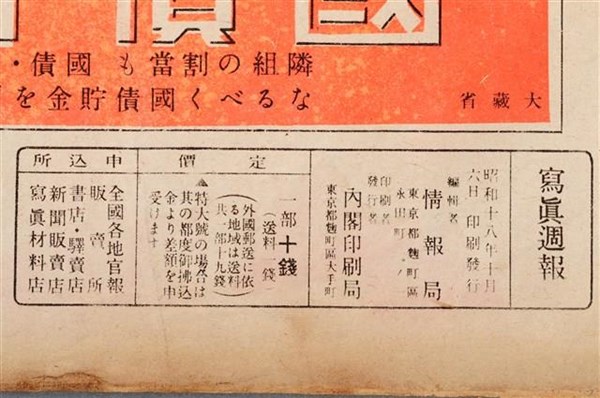 國債
隣組の割當も 國債・
なるべく國債貯金を
大藏省
寫眞週報
昭和十八年十月
六日 印刷發行
編輯者
東京都麴町區
永田町一ノ一
情報局
印刷者
發行者
內閣印刷局
東京都麴町區大手町
定價
一部十錢
（送料一錢）
（外國郵送に依
る地域は送料
共一部十九錢）
▲特大號の場合は
其の都度御拂込
金より差額を申
受けます
申込所
全國各地官報
販賣所
書店・驛賣店
新聞販賣店
寫眞材料店